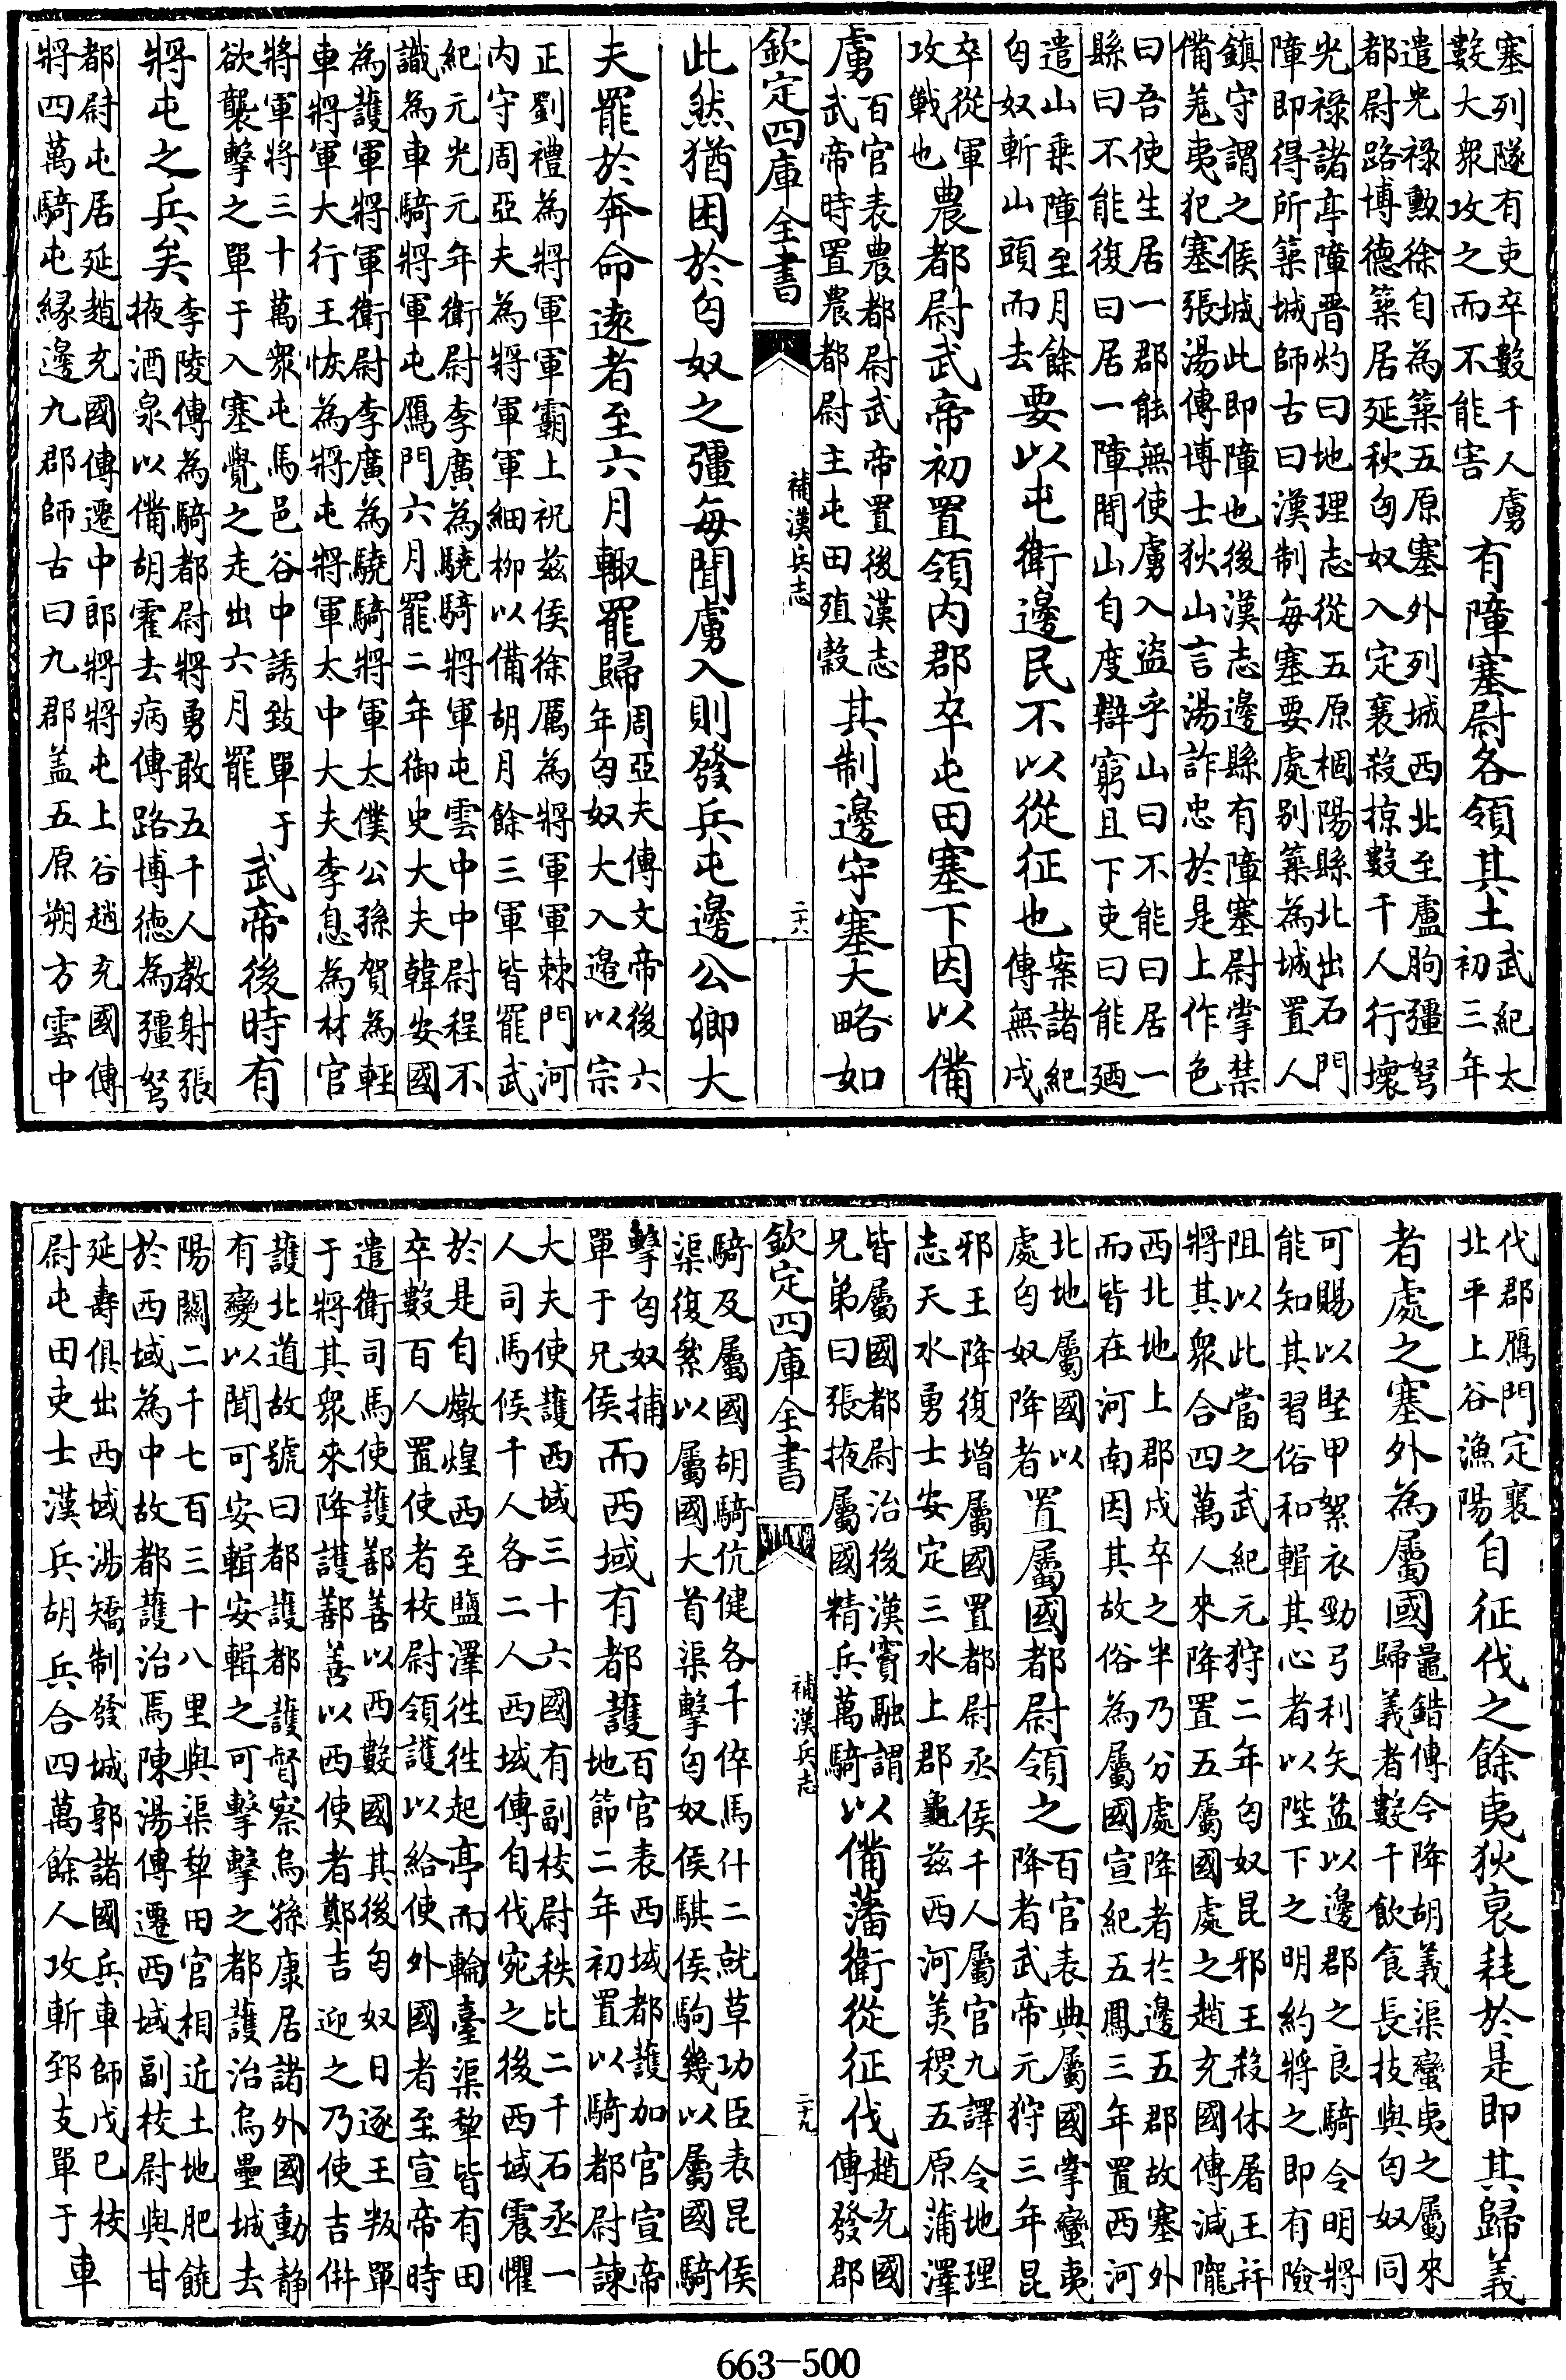 塞列隧有吏卒數千人虜數大衆攻之而不能害有障塞尉各領其土武紀太初三年
遣光禄勲徐自為築五原塞外列城西北至盧朐彊弩都尉路博德築居延秋匈奴入定襄殺掠數千人行壞
光禄諸亭障晋灼曰地理志從五原棝陽縣北出石門障即得所築城師古曰漢制每塞要處别築為城置人
鎮守謂之候城此即障也後漢志邊縣有障塞尉掌禁備羌夷犯塞張湯傳博士狄山言湯詐忠於是上作色
曰吾使生居一郡能無使虜入盗乎山曰不能曰居一縣曰不能復曰居一障間山自度辯窮且下吏曰能廼
遣山乗障至月餘匈奴斬山頭而去要以屯衛邊民不以從征也案諸紀傳無戍
卒從軍攻戰也農都尉武帝初置領内郡卒屯田塞下因以備
虜百官表農都尉武帝置後漢志武帝時置農都尉主屯田殖穀其制邊守塞大略如
欽定四庫全書 補漢兵志 二十八
此然猶困於匈奴之彊每聞虜入則發兵屯邊公卿大
夫罷於奔命逺者至六月輙罷歸周亞夫傳文帝後六年匈奴大入邉以宗
正劉禮為將軍軍霸上祝兹侯徐厲為將軍軍棘門河内守周亞夫為將軍軍細柳以備胡月餘三軍皆罷武
紀元光元年衛尉李廣為驍騎將軍屯雲中中尉程不識為車騎將軍屯鴈門六月罷二年御史大夫韓安國
為護軍將軍衛尉李廣為驍騎將軍太僕公孫賀為輕車將軍大行王恢為將屯將軍太中大夫李息為材官
將軍將三十萬衆屯馬邑谷中誘致單于欲襲擊之單于入塞覺之走出六月罷武帝後時有
將屯之兵矣李陵傳為騎都尉將勇敢五千人教射張掖酒泉以備胡霍去病傳路博德為彊弩
都尉屯居延趙充國傳遷中郎將將屯上谷趙充國傳將四萬騎屯縁邊九郡師古曰九郡盖五原朔方雲中
代郡鴈門定襄北平上谷漁陽自征伐之餘夷狄衰耗於是即其歸義
者處之塞外為屬國鼂錯傳今降胡義渠蠻夷之屬來歸義者數千飲食長技與匈奴同
可賜以堅甲絮衣勁弓利矢益以邊郡之良騎令明將能知其習俗和輯其心者以陛下之明約將之即有險
阻以此當之武紀元狩二年匈奴昆邪王殺休屠王并將其衆合四萬人來降置五屬國處之趙充國傳減隴
西北地上郡戍卒之半乃分處降者於邊五郡故塞外而皆在河南因其故俗為屬國宣紀五鳳三年置西河
北地屬國以處匈奴降者置屬國都尉領之百官表典屬國掌蠻夷降者武帝元狩三年昆
邪王降復增屬國置都尉丞侯千人屬官九譯令地理志天水勇士安定三水上郡龜兹西河美稷五原蒲澤
皆屬國都尉治後漢竇融謂兄弟曰張掖屬國精兵萬騎以備藩衛從征伐趙充國傳發郡
欽定四庫全書 補漢兵志 二十九
騎及屬國胡騎伉健各千倅馬什二就草功臣表昆侯渠復絫以屬國大首渠擊匈奴侯騏侯駒幾以屬國騎
擊匈奴捕單于兄侯而西域有都護百官表西域都護加官宣帝地節二年初置以騎都尉諫
大夫使護西域三十六國有副校尉秩比二千石丞一人司馬候千人各二人西域傳自伐宛之後西域震懼
於是自燉煌西至鹽澤徃徃起亭而輪臺渠犂皆有田卒數百人置使者校尉領護以給使外國者至宣帝時
遣衛司馬使護鄯善以西數國其後匈奴日逐王叛單于將其衆來降護鄯善以西使者鄭吉迎之乃使吉併
護北道故號曰都護都護督察烏孫康居諸外國動静有變以聞可安輯安輯之可擊擊之都護治烏壘城去
陽關二千七百三十八里與渠犂田官相近土地肥饒於西域為中故都護治焉陳湯傳遷西域副校尉與甘
延壽俱出西域湯矯制發城郭諸國兵車師戊已校尉屯田吏士漢兵胡兵合四萬餘人攻斬郅支單于車
663-500